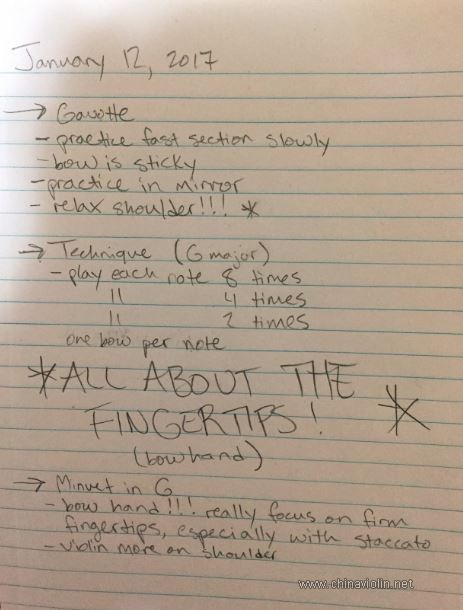 January 12, 2017
→ Gavotte
- practice fast section slowly
- bow is sticky
- practice in mirror
- relax shoulder!!! *
→ Technique (G major)
- play each note 8 times
" 4 times
" 2 times
one bow per note
*ALL ABOUT THE
FINGERTIPS! *
(bowhand)
→ Minuet in G
- bow hand!!! really focus on firm
fingertips, especially with staccato
- violin more on shoulder
www.chinaviolin.net